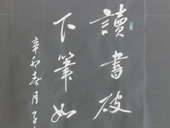 讀書破
下筆如
辛卯春月